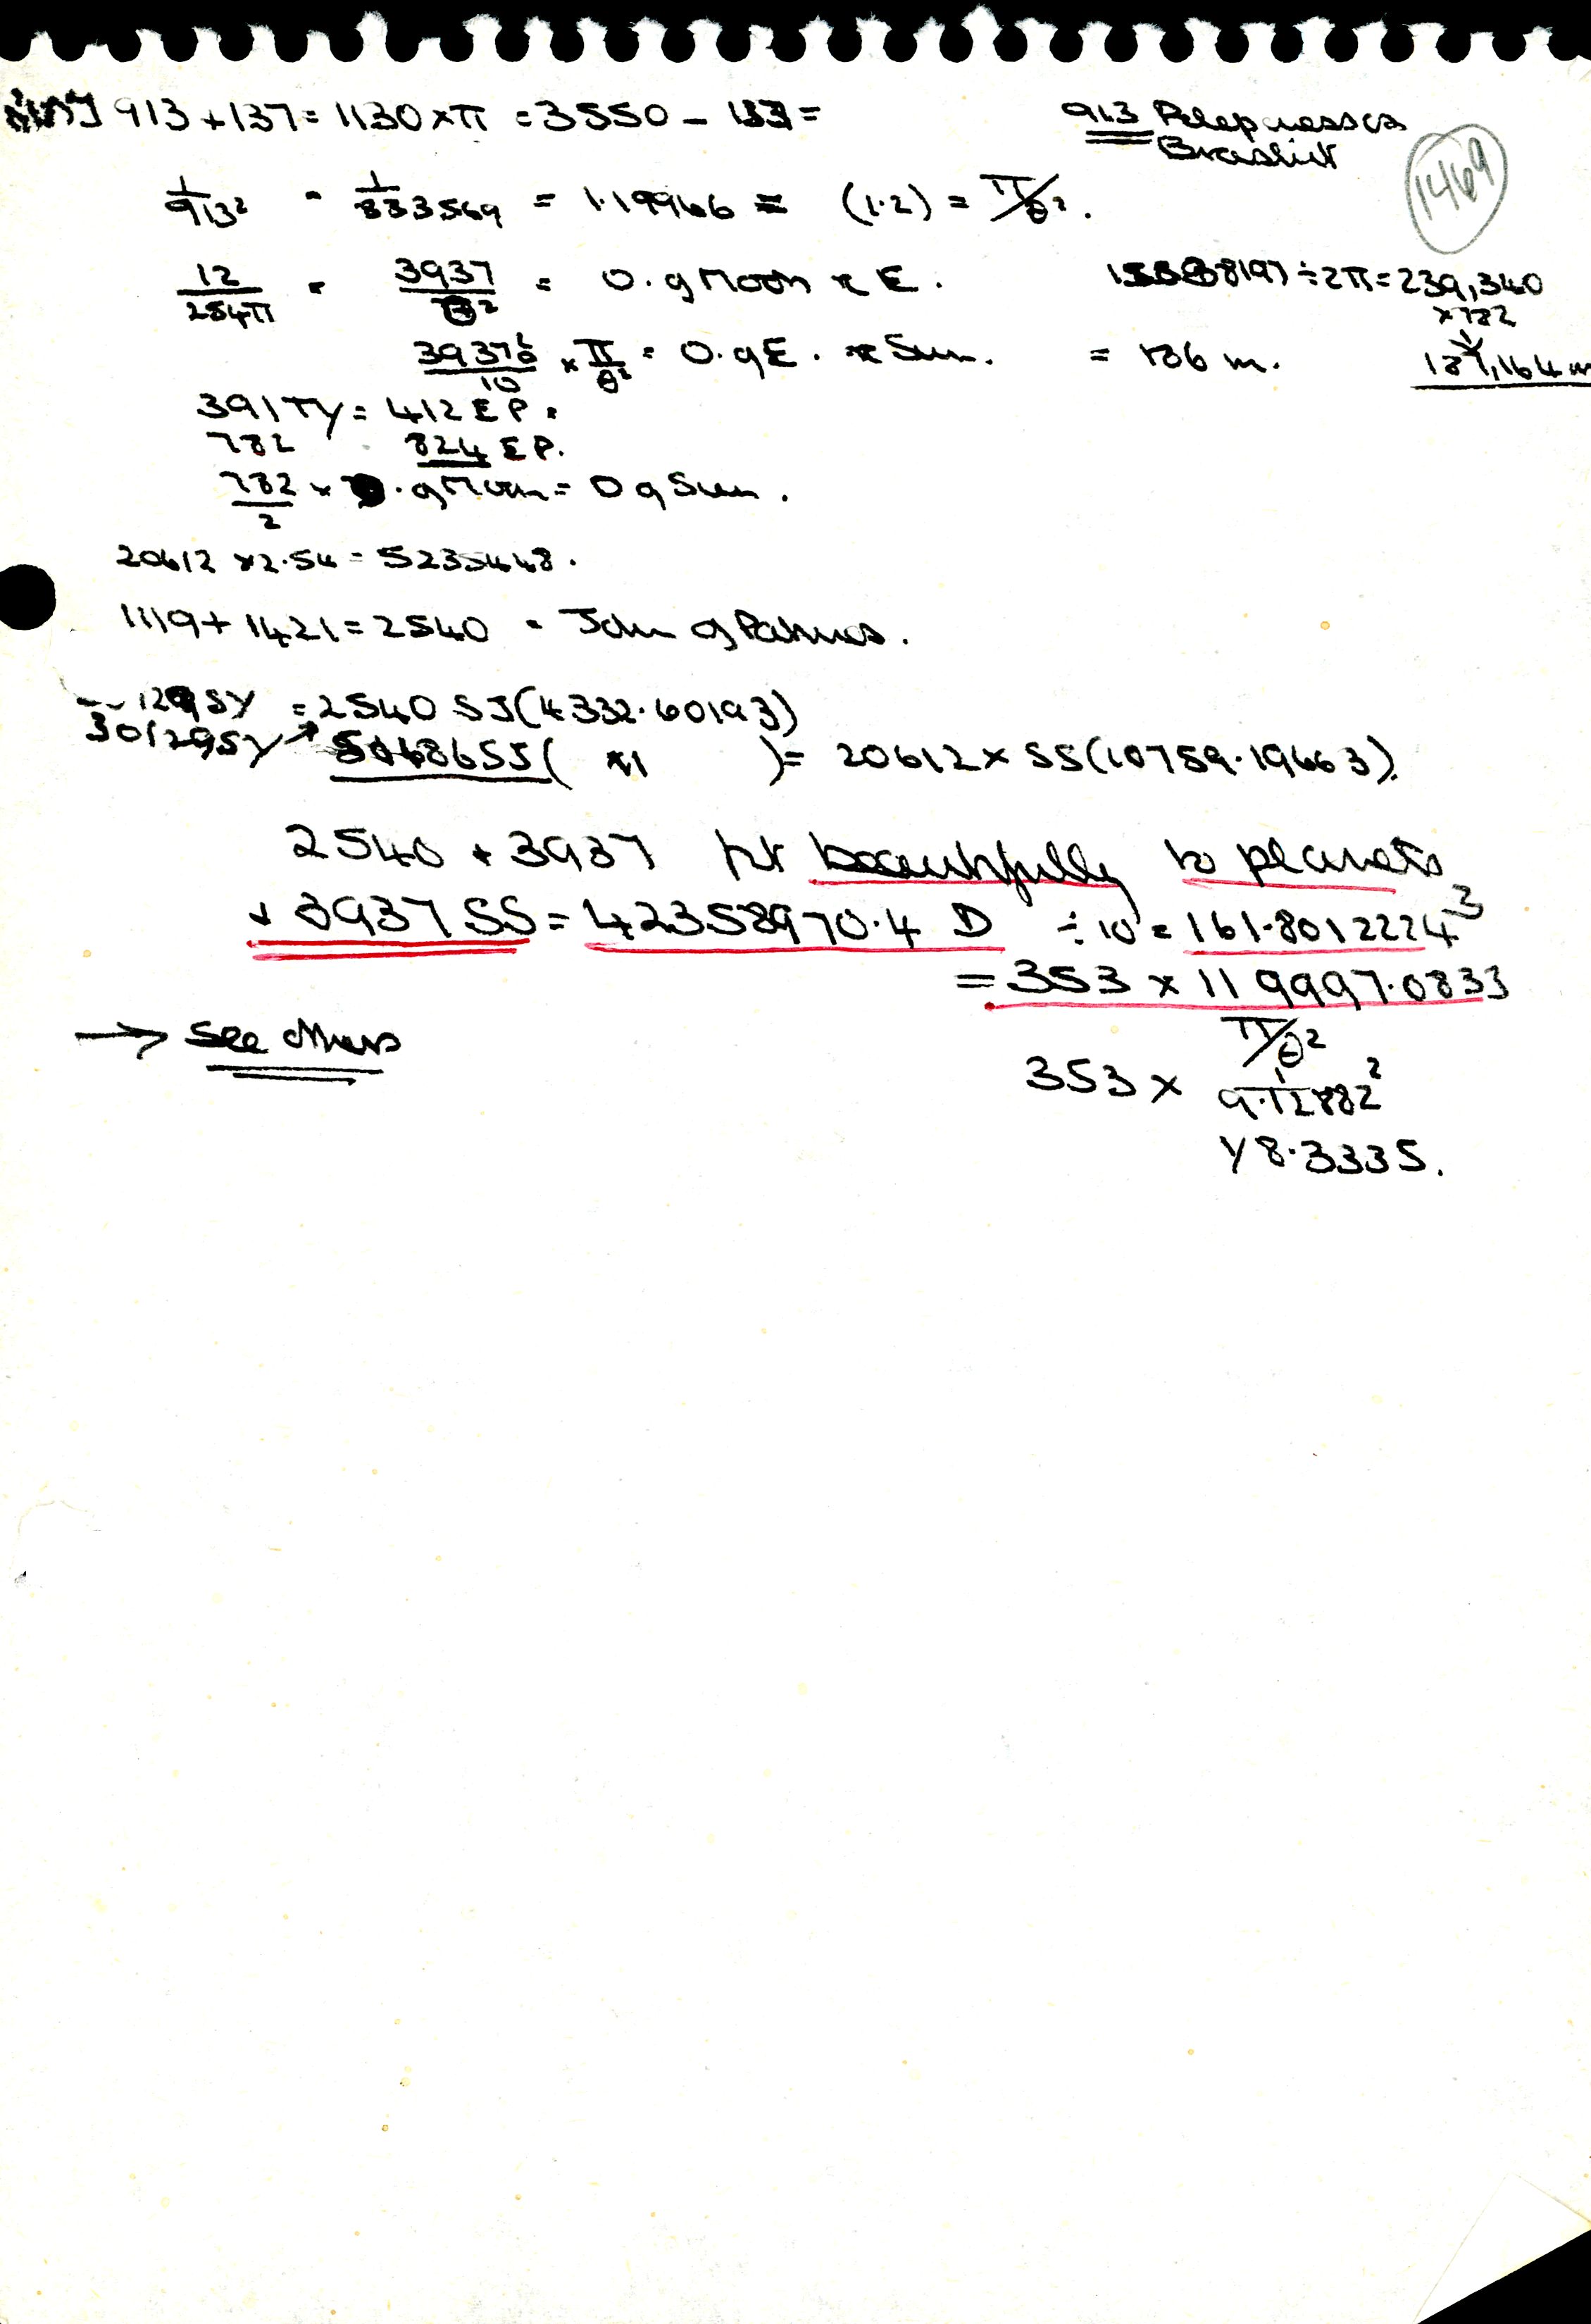 913 + 137 = 1130 × π = 3550 – 137 =
913 Peloponessos
Brashit
1469
1/913² = 1/833569 = 1.19966 = (1.2) = π/θ².
12/254π = 3937/θ² = 0.g Moon r E.
155338197 ÷ 2π = 239,340
× 782
187,164 m
3937/10 × π/θ² = 0.g E. r Sun. = 186 m.
391 TY = 412 EP.
782 824 EP.
782/2 × 0.g Moon = 0 g Sun.
20612 × 2.54 = 5235448.
1119 + 1421 = 2540 = John of Patmos.
SY = 2540 SJ (4332.60193)
30129 SY → 51186 SJ ( " ) = 20612 × SS (10759.19663).
2540 + 3937 fit beautifully to planets
+ 3937 SS = 42358970.4 D ÷ 10 = 161.8012224³
= 353 × 119997.0833
π/θ²
353 × 1/9.12882²
y 8.3335.
→ See Mars